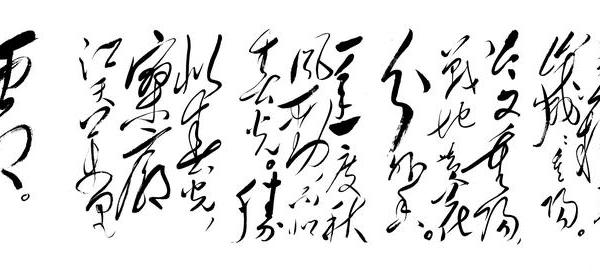 歲々重阳。
今又重阳,
戰地黄花
分外香。
一年一度秋
風劲,不似
春光。勝
似春光,
寥廓
江天万里
霜。